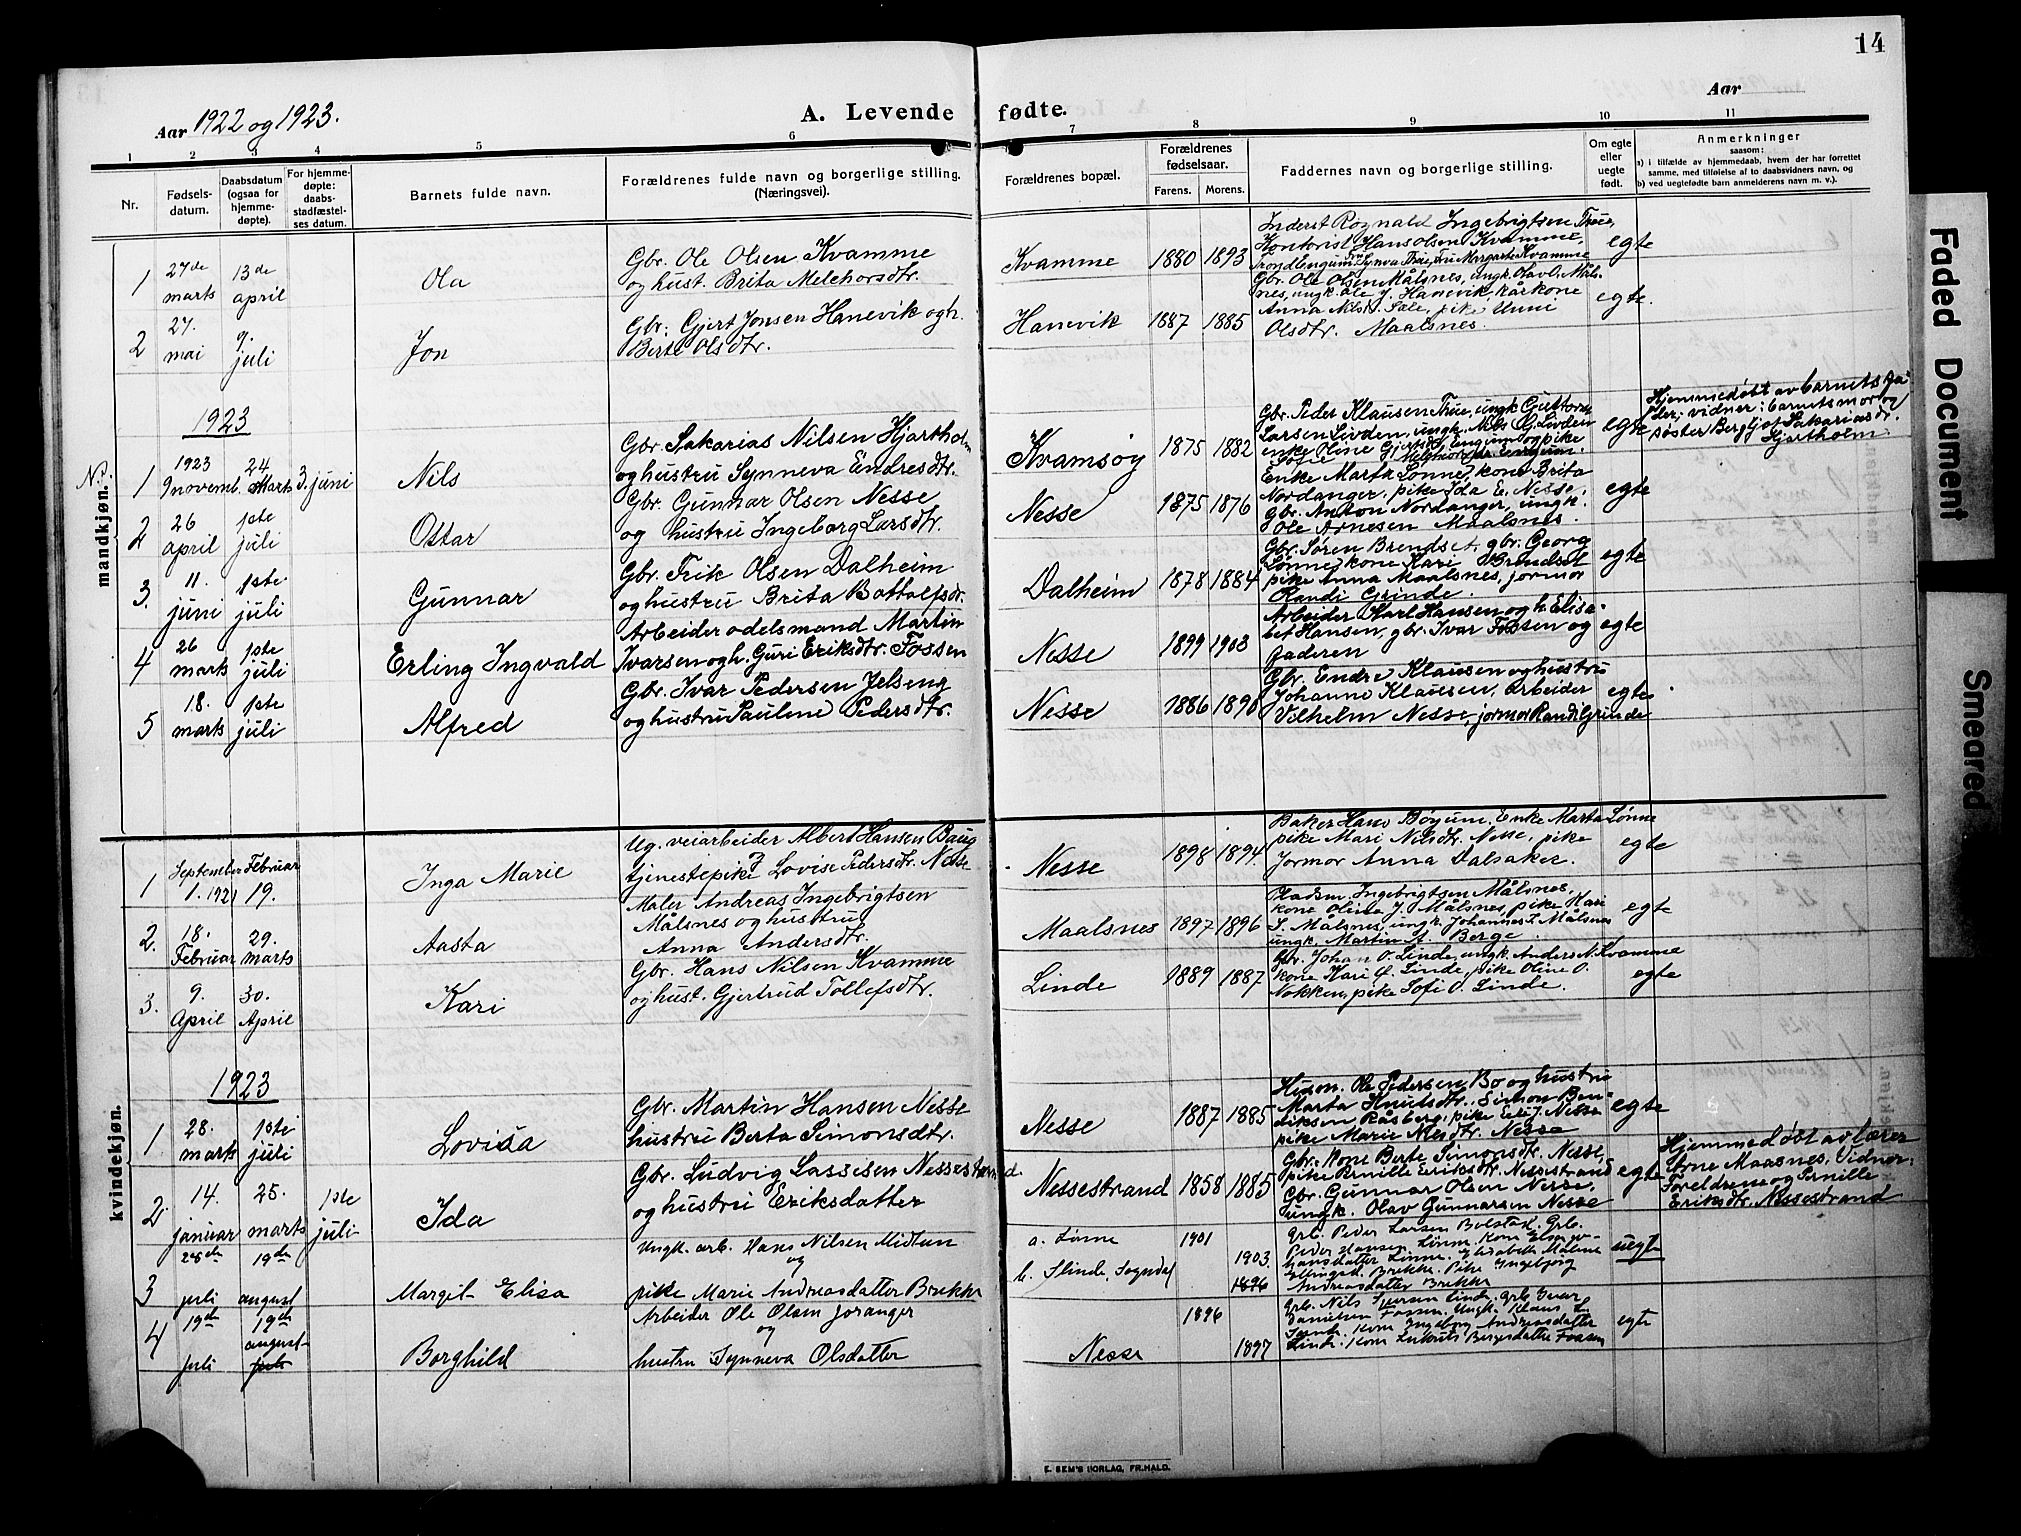 14
Aar 1922 og 1923.
A. Levende fødte.
Aar
1 2 3 4 5 6 7 8 9 10 11
Nr.
Fødsels-
datum.
Daabsdatum
(ogsaa for
hjemme-
døpte).
For hjemme-
døpte:
daabs-
stadfæstel-
ses datum.
Barnets fulde navn.
Forældrenes fulde navn og borgerlige stilling.
(Næringsvei).
Forældrenes bopæl.
Forældrenes
fødselsaar.
Farens. Morens.
Faddernes navn og borgerlige stilling.
Om egte
eller
uegte
født.
Anmerkninger
saasom:
a) i tilfælde av hjemmedaab, hvem der har forrettet
samme, med tilføielse af to daabsvidners navn, og
b) ved uegtefødte barn anmelderens navn m. v.).
mandkjøn.
1
27de
marts
13de
april
Ola
Gbr. Ole Olsen Kvamme
og hust. Brita Melchorsdtr.
Kvamme
1880 1893
Kontorist Hans Olsen Kvamme,
egte
2
27.
mai
9.
juli
Jon
Gbr. Gjert Jonsen Hanevik og h.
Berte Olsdtr.
Hanevik
1887 1885
Gbr. Ole Olsen Målsnes, ungk. Olav O. Måls-
nes, ungk. Ole J. Hanevik, kårkone
Anna Nilsd. Sæle, pike Unni
Olsdtr. Maalsnes.
egte.
1923
N.
1
1923
9 novemb.
24
Marts
3. juni
Nils
Gbr. Sakarias Nilsen Hjartholm
og hustru Synneva Endresdtr.
Kvamsøy
1875 1882
Gbr. Peder Klausen Thue, ungk. Guttorm
Larsen Livden, ungk. Nils G. Livden
egte
Hjemmedøbt av barnets fa-
der; vidner: barnets mor og
søster Bergljot Sakariasdr.
Hjartholm.
2
26
april
1ste
juli
Ottar
Gbr. Gunnar Olsen Nesse
og hustru Ingeborg Larsdtr.
Nesse
1875 1876
Enke Marta Lønne, kone Brita
Nordanger, pike Ida E. Nesse,
gbr. Anton Nordanger, ungk.
Ole Arnesen Maalsnes.
egte
3.
11.
juni
1ste.
juli
Gunnar
Gbr. Erik Olsen Dalheim
og hustru Brita Bottolfsdr.
Dalheim
1878 1884
Gbr. Søren Brendset, gbr. Georg
Lønne, kone Kari Brendset
pike Anna Maalsnes, jormor
Randi Grinde.
egte
4
26
marts
1ste
juli
Erling Ingvald
Arbeider odelsmand Martin
Ivarsen og h. Guri Eriksdtr. Fossen
Nesse
1899 1903
Arbeider Karl Hansen og h. Elisa-
bet Hansen, gbr. Ivar Fossen og
faderen
egte
5
18.
marts
1ste
juli
Alfred
Gbr. Ivar Pedersen Jelseng
og hustru Pauline Pedersdtr.
Nesse
1886 1890
Gbr. Endre Klausen og hustru
Johanne Klausen, arbeider
Vilhelm Nesse, jormor Randi Grinde
egte
kvindekjøn.
1
September
1. 1921
Februar
19.
Inga Marie
Ug. veiarbeider Albert Hansen Baug
tjenestepike Lovise Pedersdtr. Nesse
Nesse
1898 1894
Baker Hans Bøyum, Enke Marta Lønne
pike Mari Nilsdtr. Nesse, pike
Jormor Anna Dalsaker.
egte
2.
18.
Februar
29.
Marts
Aasta
Maler Andreas Ingebrigtsen
Målsnes og hustru
Anna Andersdtr.
Maalsnes
1897 1896
Ingebrigtsen Målsnes,
kone Olina J. Målsnes, pike Kari
S. Målsnes, ungk. Johannes I. Målsnes
ungk. Martin A. Berge.
egte
3.
9.
April
30.
April
Kari
Gbr. Hans Nilsen Kvamme
og hust. Gjertrud Tollefsdtr.
Linde
1889 1887
Gbr. Johan O. Linde, ungk. Anders N. Kvamme
kone Kari O. Linde, pike Oline O.
Nokken, pike Sofi O. Linde.
egte
1923
1
28.
mars
1ste
juli
Lovisa
Gbr. Martin Hansen Nesse
hustru Berta Simonsdtr.
Nesse
1887 1885
Husm. Ole Pedersen Bo og hustru
Marta Knutsdtr., Simon Ben-
diksen Råsberg, pike Eli J. Nesse
pike Marie Nilsdtr. Nesse
egte
2
14.
januar
25.
marts
1ste
juli
Ida
Gbr. Ludvig Lassesen Nessestrand.
og hustru Eriksdatter
Nessestrand
1858 1885
Gbr. Kone Berte Simonsdtr. Nesse,
pike Pernille Eriksdtr. Nessestrand
Gbr. Gunnar Olsen Nesse,
ungk. Olav Gunnarsen Nesse
egte
Hjemmedøbt av lærer
Arne Maasnes, Vidner:
Foreldrene og Pernille
Eriksdtr. Nessestrand
3
28de
juli
19de
august
Margit Elisa
Ungk. arb. Hans Nilsen Midtun
og
pike Marie Andreasdatter Brekke
a. Lønne
b. Slinde, Sogndal
1901
1903
1896
Grb. Peder Larsen Bolstad, Grb.
Peder Hansen Lønne, Kone
Hansdatter Lønne, Elisabeth Målsnes
Brekke, Pike Ingebjørg
Andreasdatter Brekke
uegte
4
19de
juli
19de
august
juli
Borghild
Arbeider Ole Olsen Joranger
og
hustru Synneva Olsdatter
Nesse
1896
1897
Grb. Nils Iversen Linde, Grb. Ivar
Danielsen Fossen, Ungk. Klaus L.
Linde, Kone Ingeborg Andreasdatter
Linde, Kone Bergesdatter Fossen
egte
E. SEM'S FORLAG, FR.HALD.
Faded Document
Smeared